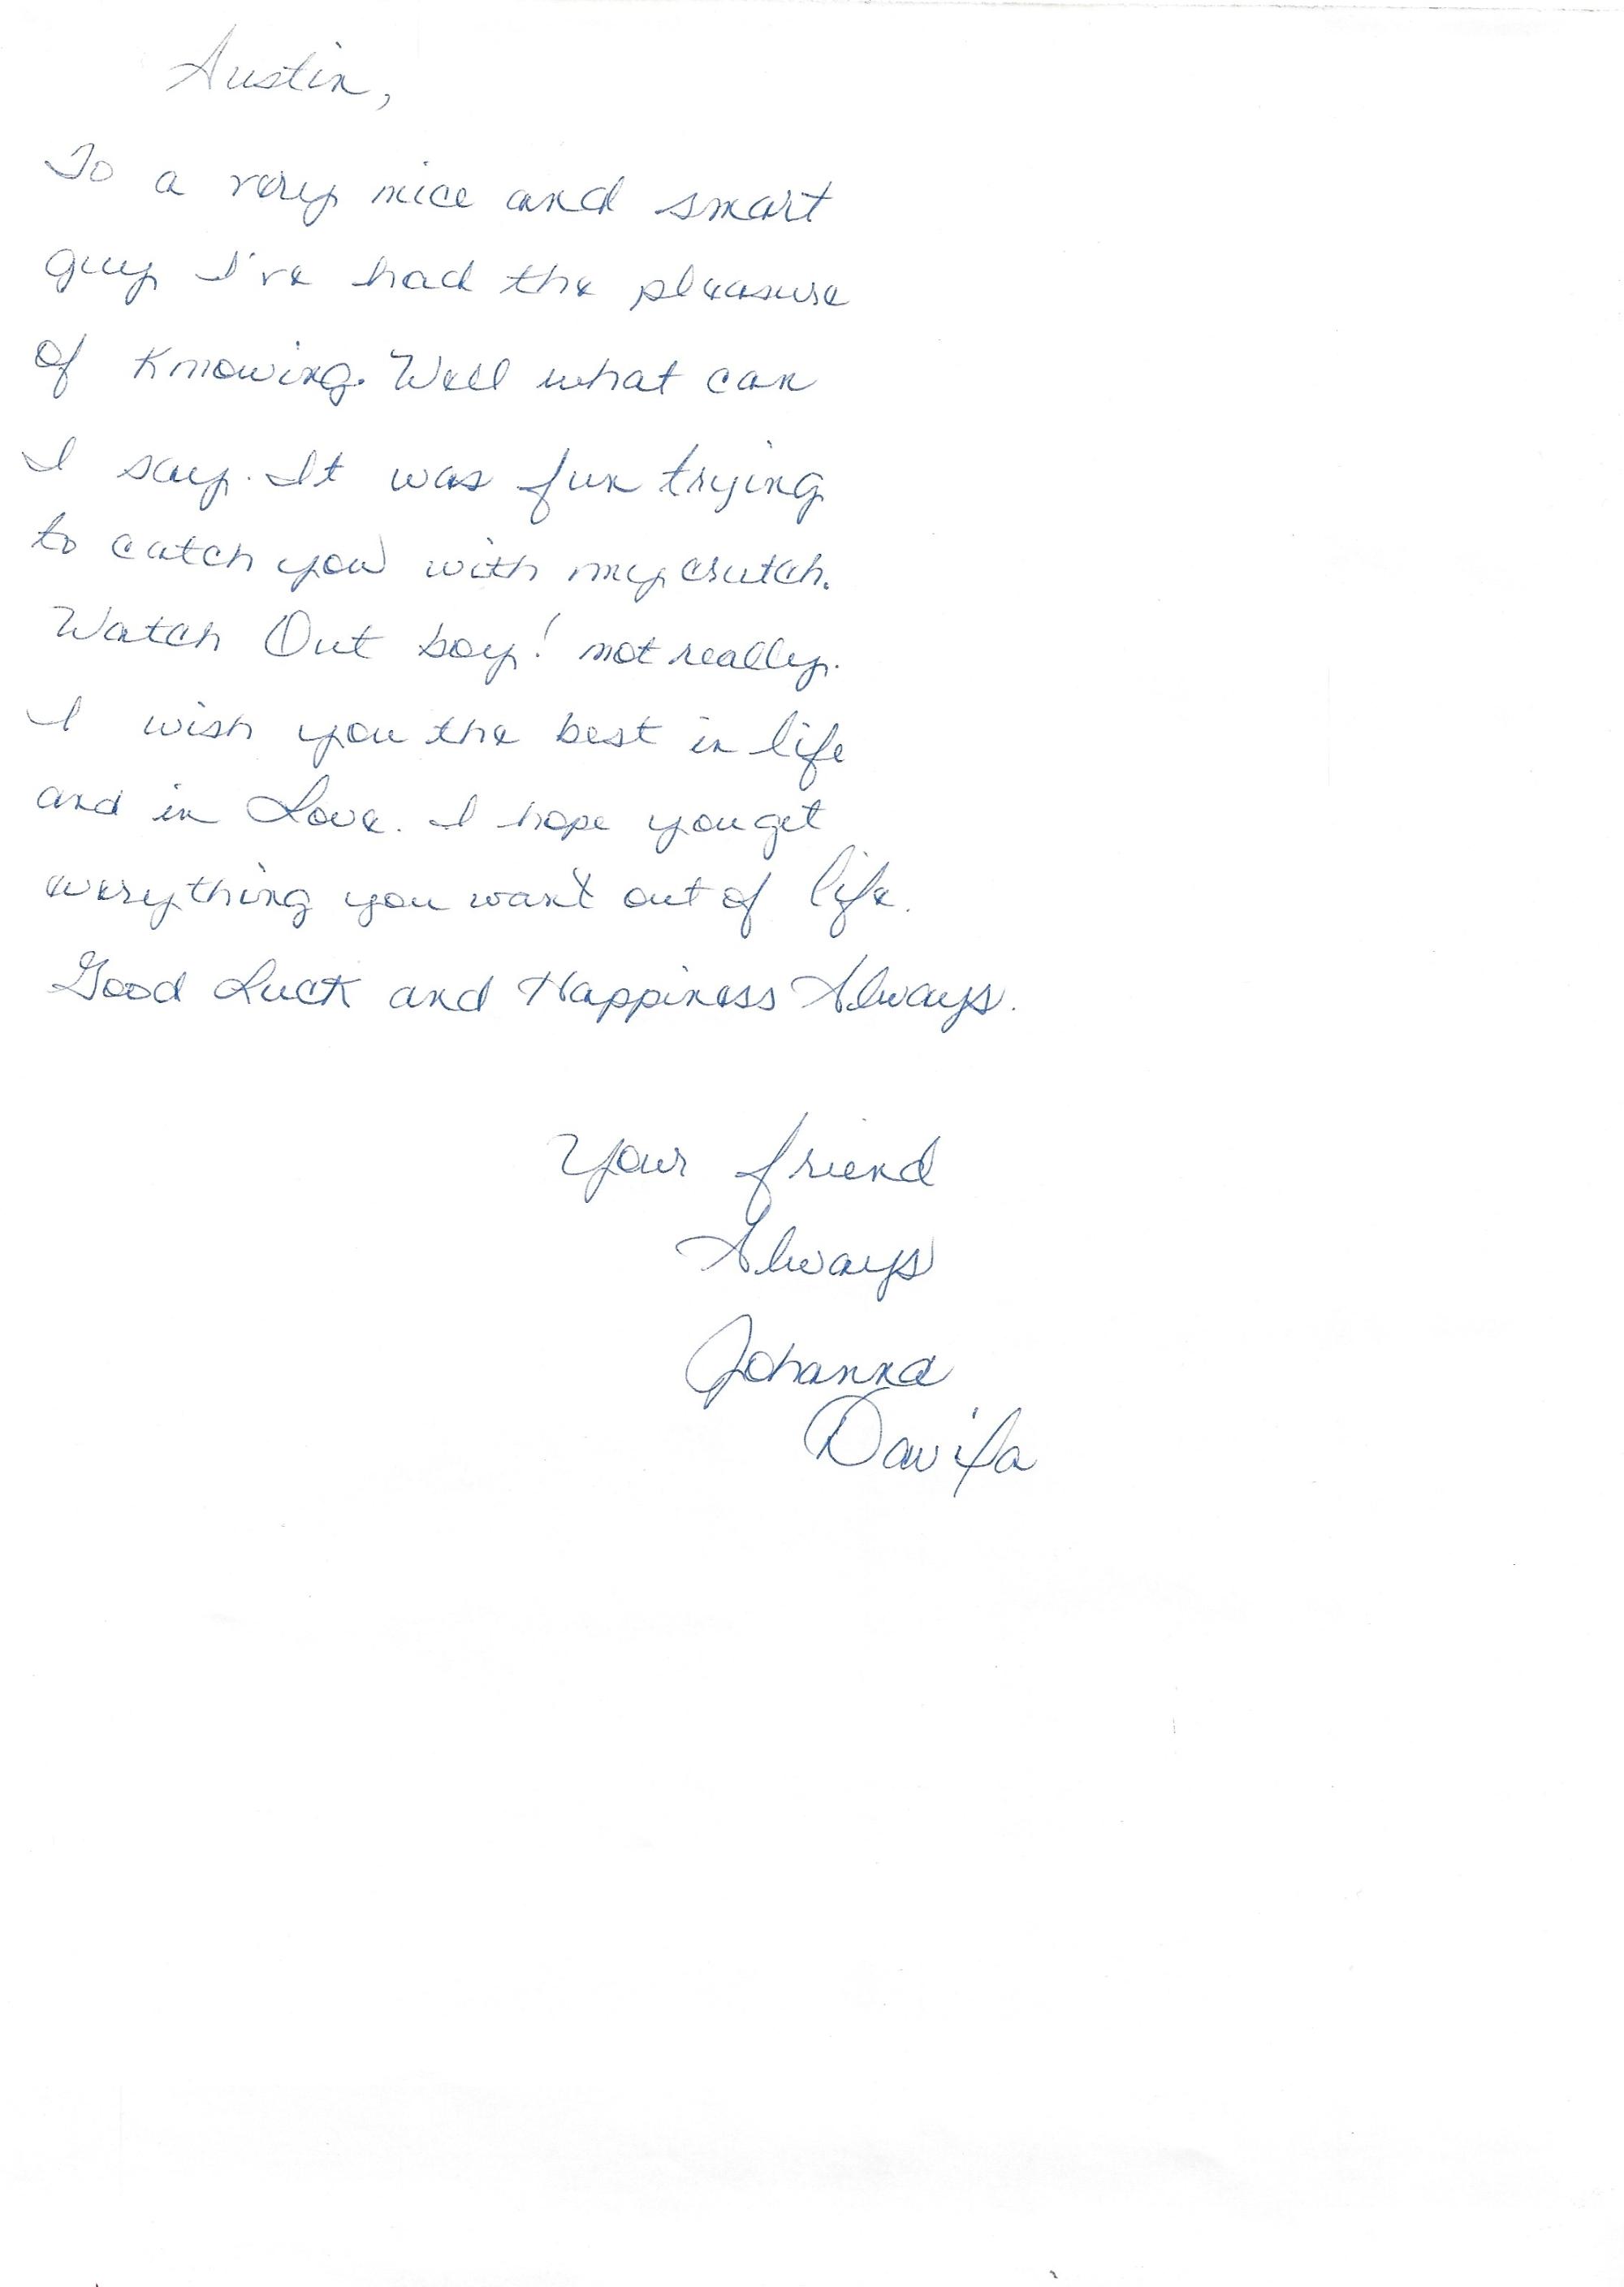 Austin,
To a very nice and smart
guy I've had the pleasure
of Knowing. Well what can
I say. It was fun trying
to catch you with my crutch.
Watch Out boy! not really.
I wish you the best in life
and in Love. I hope you get
everything you want out of life.
Good Luck and Happiness Always.
Your friend
Always
Johanna
Davila